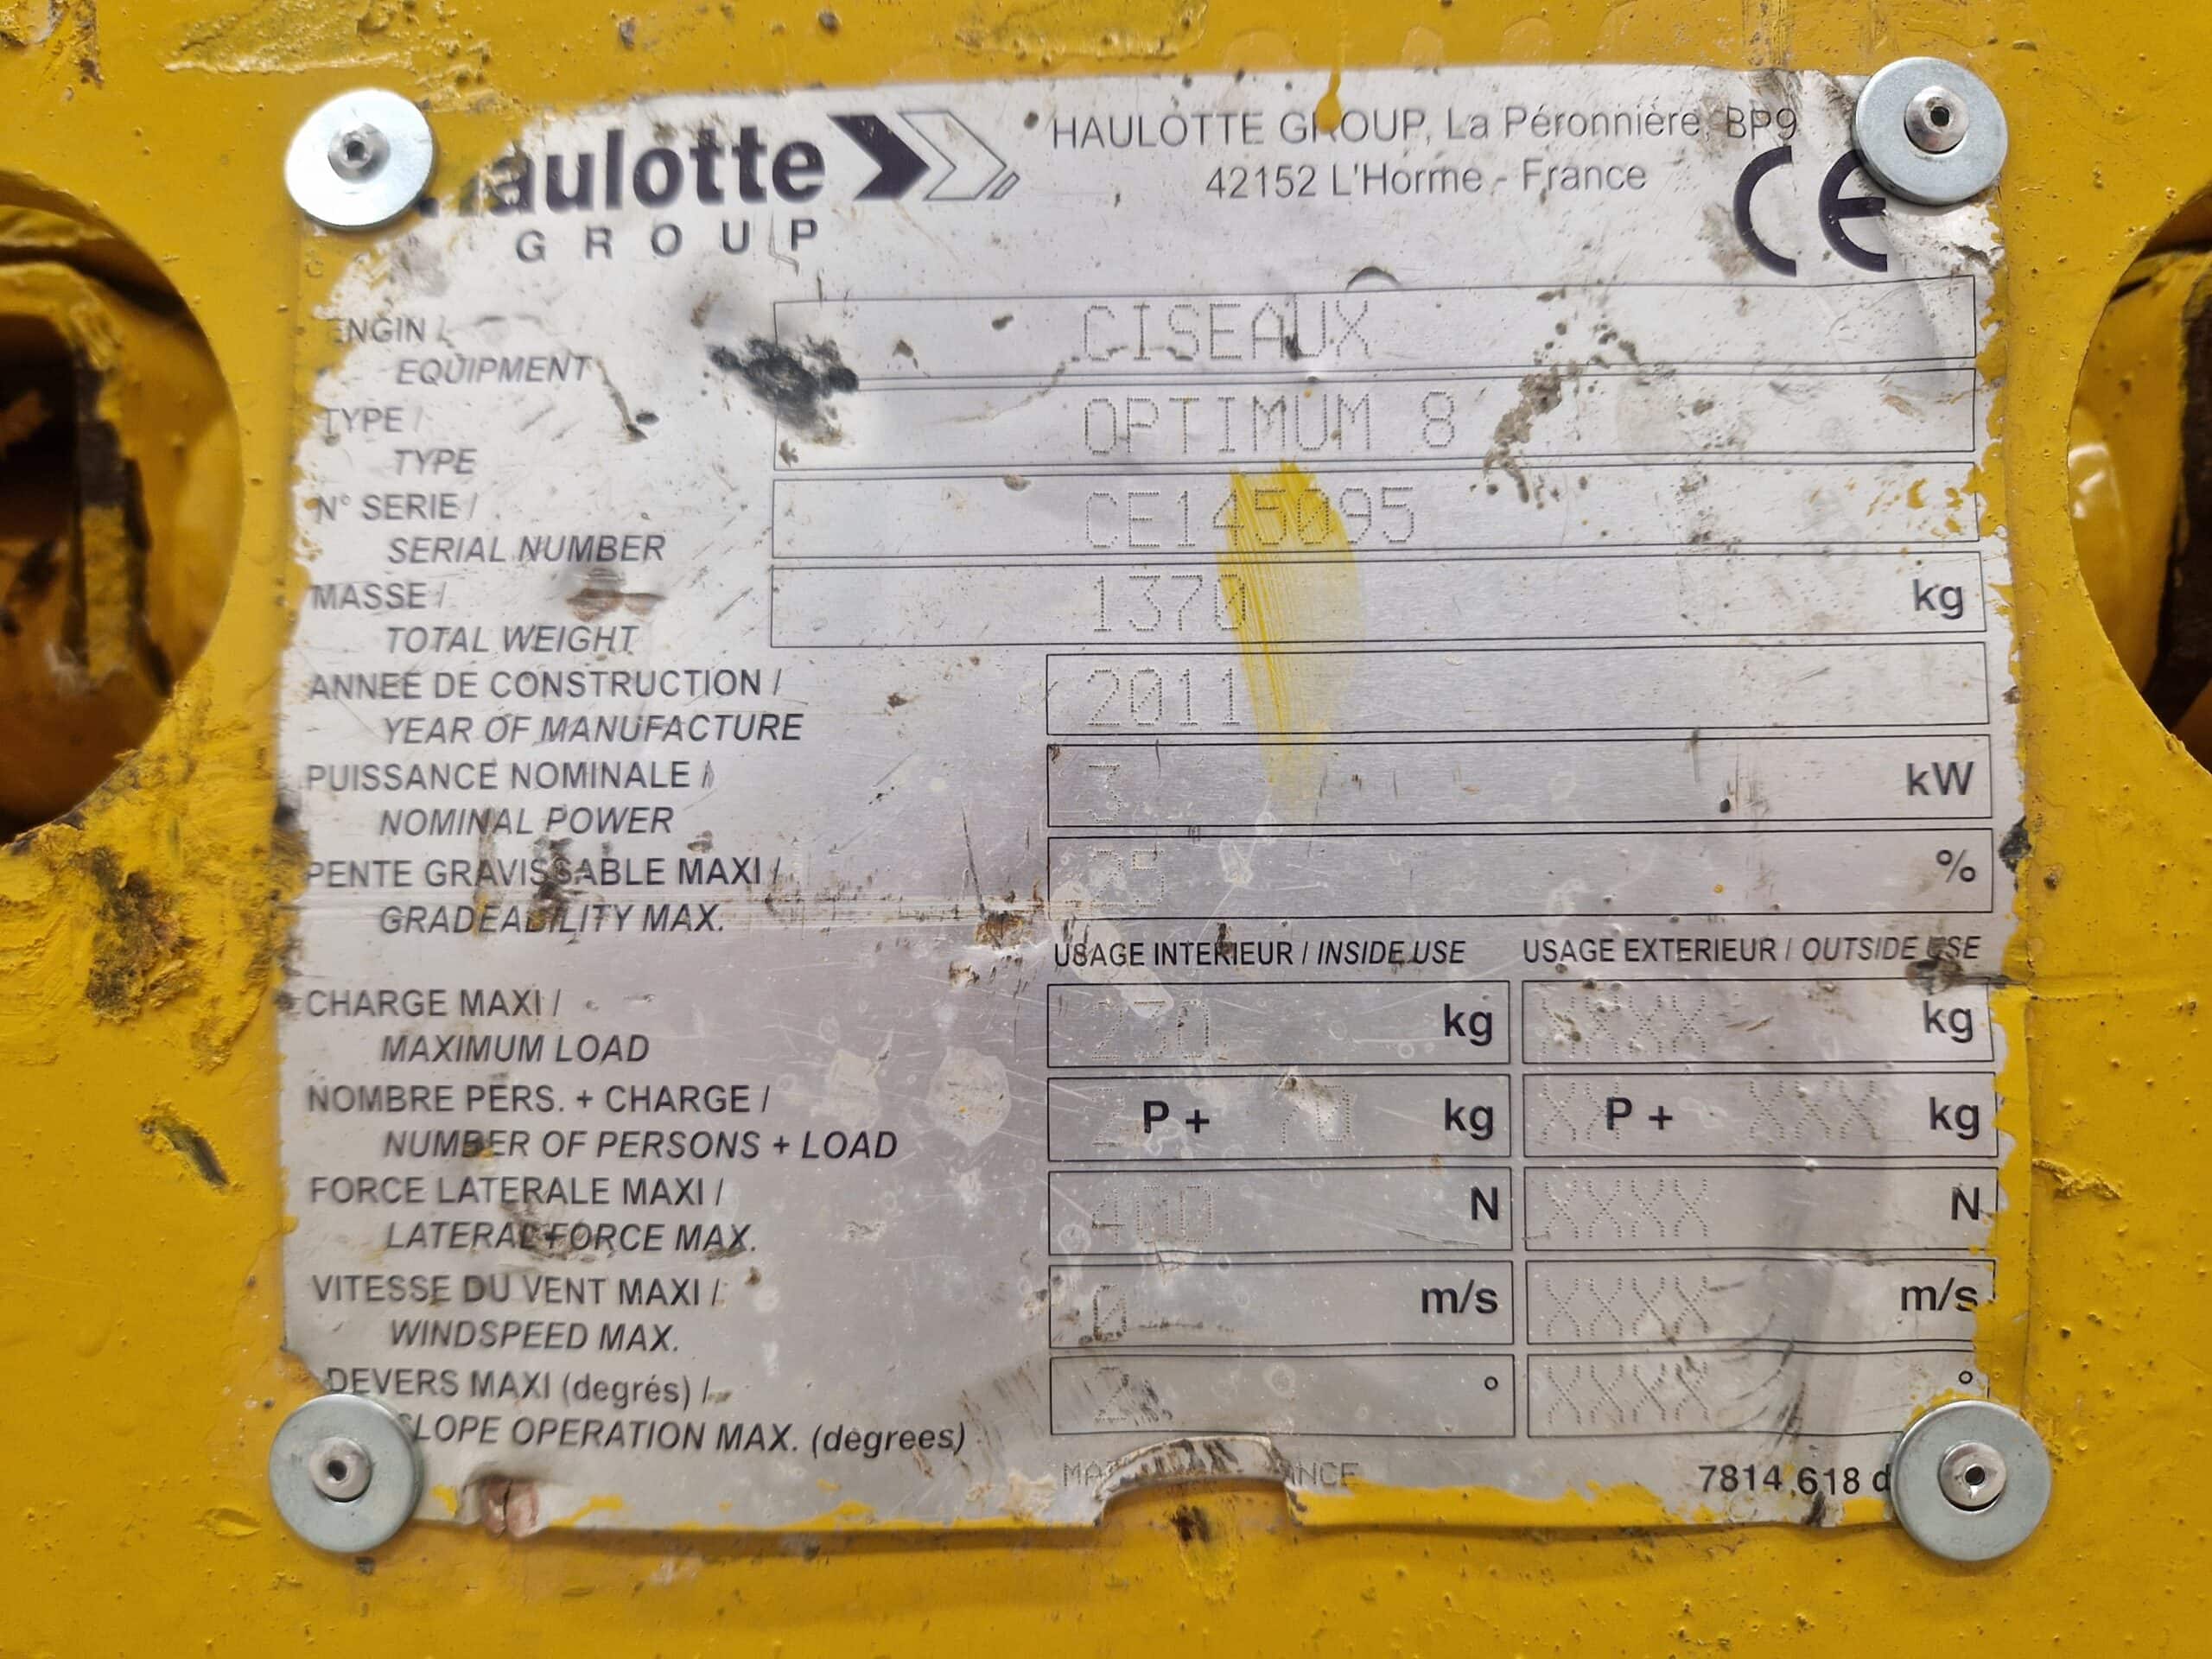 haulotte
GROUP
HAULOTTE GROUP, La Péronnière, BP9
42152 L'Horme - France
CE
ENGIN /
EQUIPMENT
CISEAUX
TYPE /
TYPE
OPTIMUM 8
N° SERIE /
SERIAL NUMBER
CE145095
MASSE /
TOTAL WEIGHT
1370 kg
ANNEE DE CONSTRUCTION /
YEAR OF MANUFACTURE
2011
PUISSANCE NOMINALE /
NOMINAL POWER
3 kW
PENTE GRAVISSABLE MAXI /
GRADEABILITY MAX.
25 %
USAGE INTERIEUR / INSIDE USE USAGE EXTERIEUR / OUTSIDE USE
CHARGE MAXI /
MAXIMUM LOAD
230 kg XXXX kg
NOMBRE PERS. + CHARGE /
NUMBER OF PERSONS + LOAD
2 P + 70 kg XX P + XXX kg
FORCE LATERALE MAXI /
LATERAL FORCE MAX.
400 N XXXX N
VITESSE DU VENT MAXI /
WINDSPEED MAX.
0 m/s XXXX m/s
DEVERS MAXI (degrés) /
SLOPE OPERATION MAX. (degrees)
2 ° XXXX °
7814 618 d